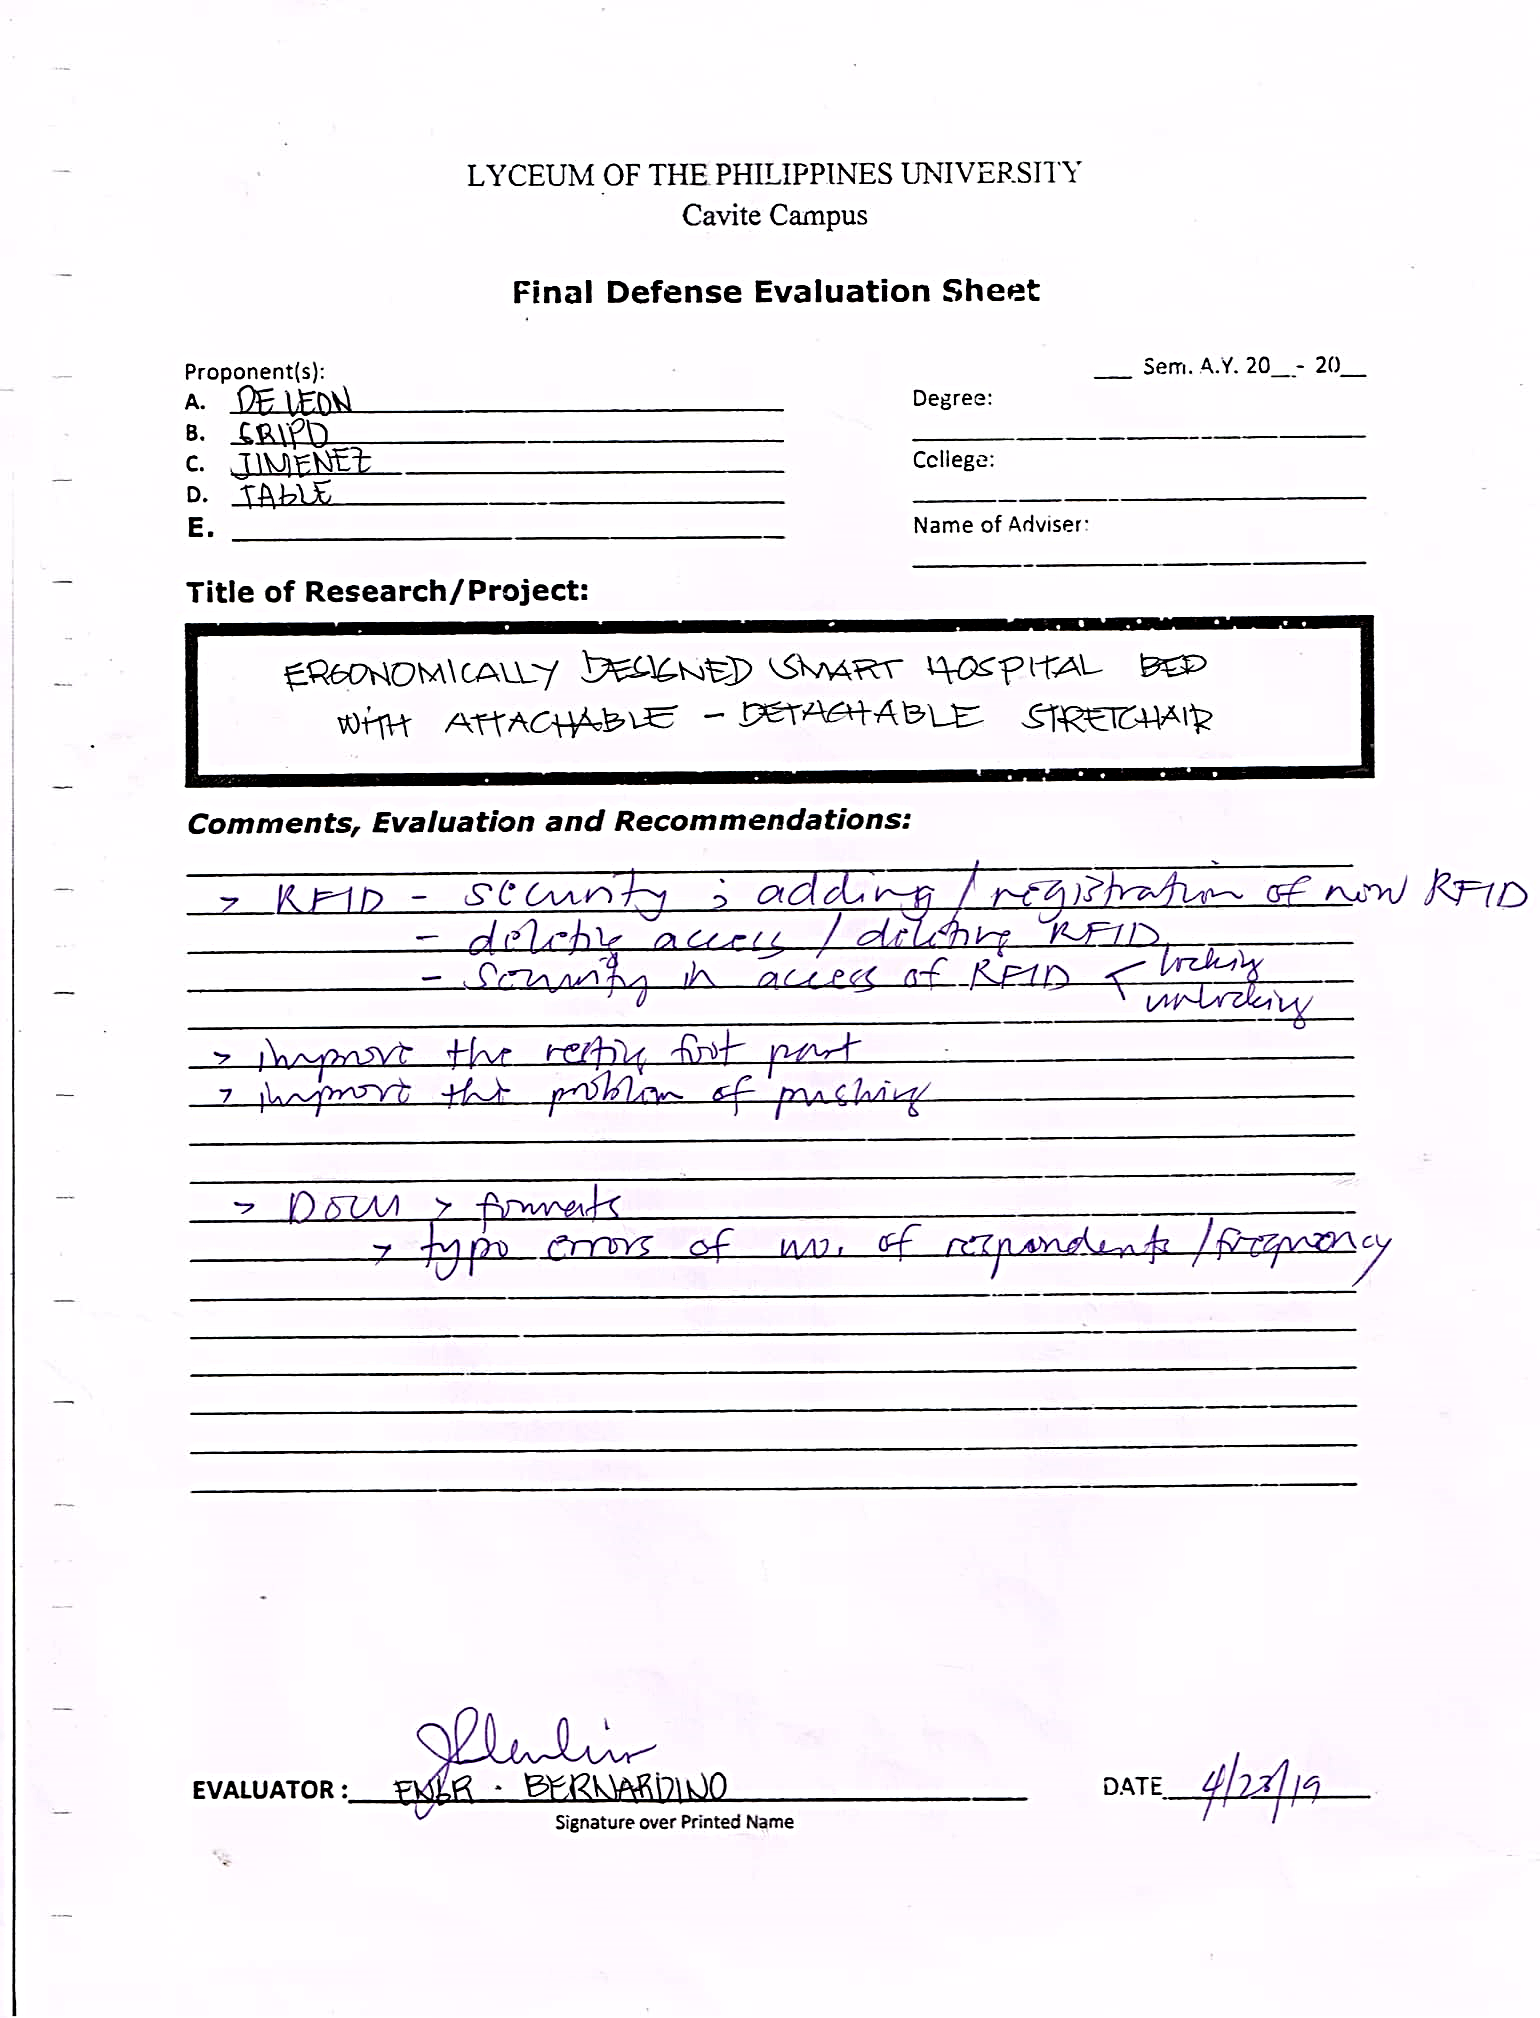 LYCEUM OF THE PHILIPPINES UNIVERSITY
Cavite Campus
Final Defense Evaluation Sheet
Proponent(s):
___ Sem. A.Y. 20__- 20__
A. DE LEON
Degree:
B. GRIPO
C. JIMENEZ
College:
D. TABLE
E.
Name of Adviser:
Title of Research/Project:
ERGONOMICALLY DESIGNED SMART HOSPITAL BED
WITH ATTACHABLE - DETACHABLE STRETCHAIR
Comments, Evaluation and Recommendations:
> RFID - security ; adding / registration of new RFID
- deleting access / deleting RFID
- security in access of RFID < locking
unlocking
> improve the resting foot part
> improve the problem of pushing
> Docu > formats
> typo errors of no. of respondents / frequency
EVALUATOR : ENGR. BERNARDINO
DATE 4/23/19
Signature over Printed Name